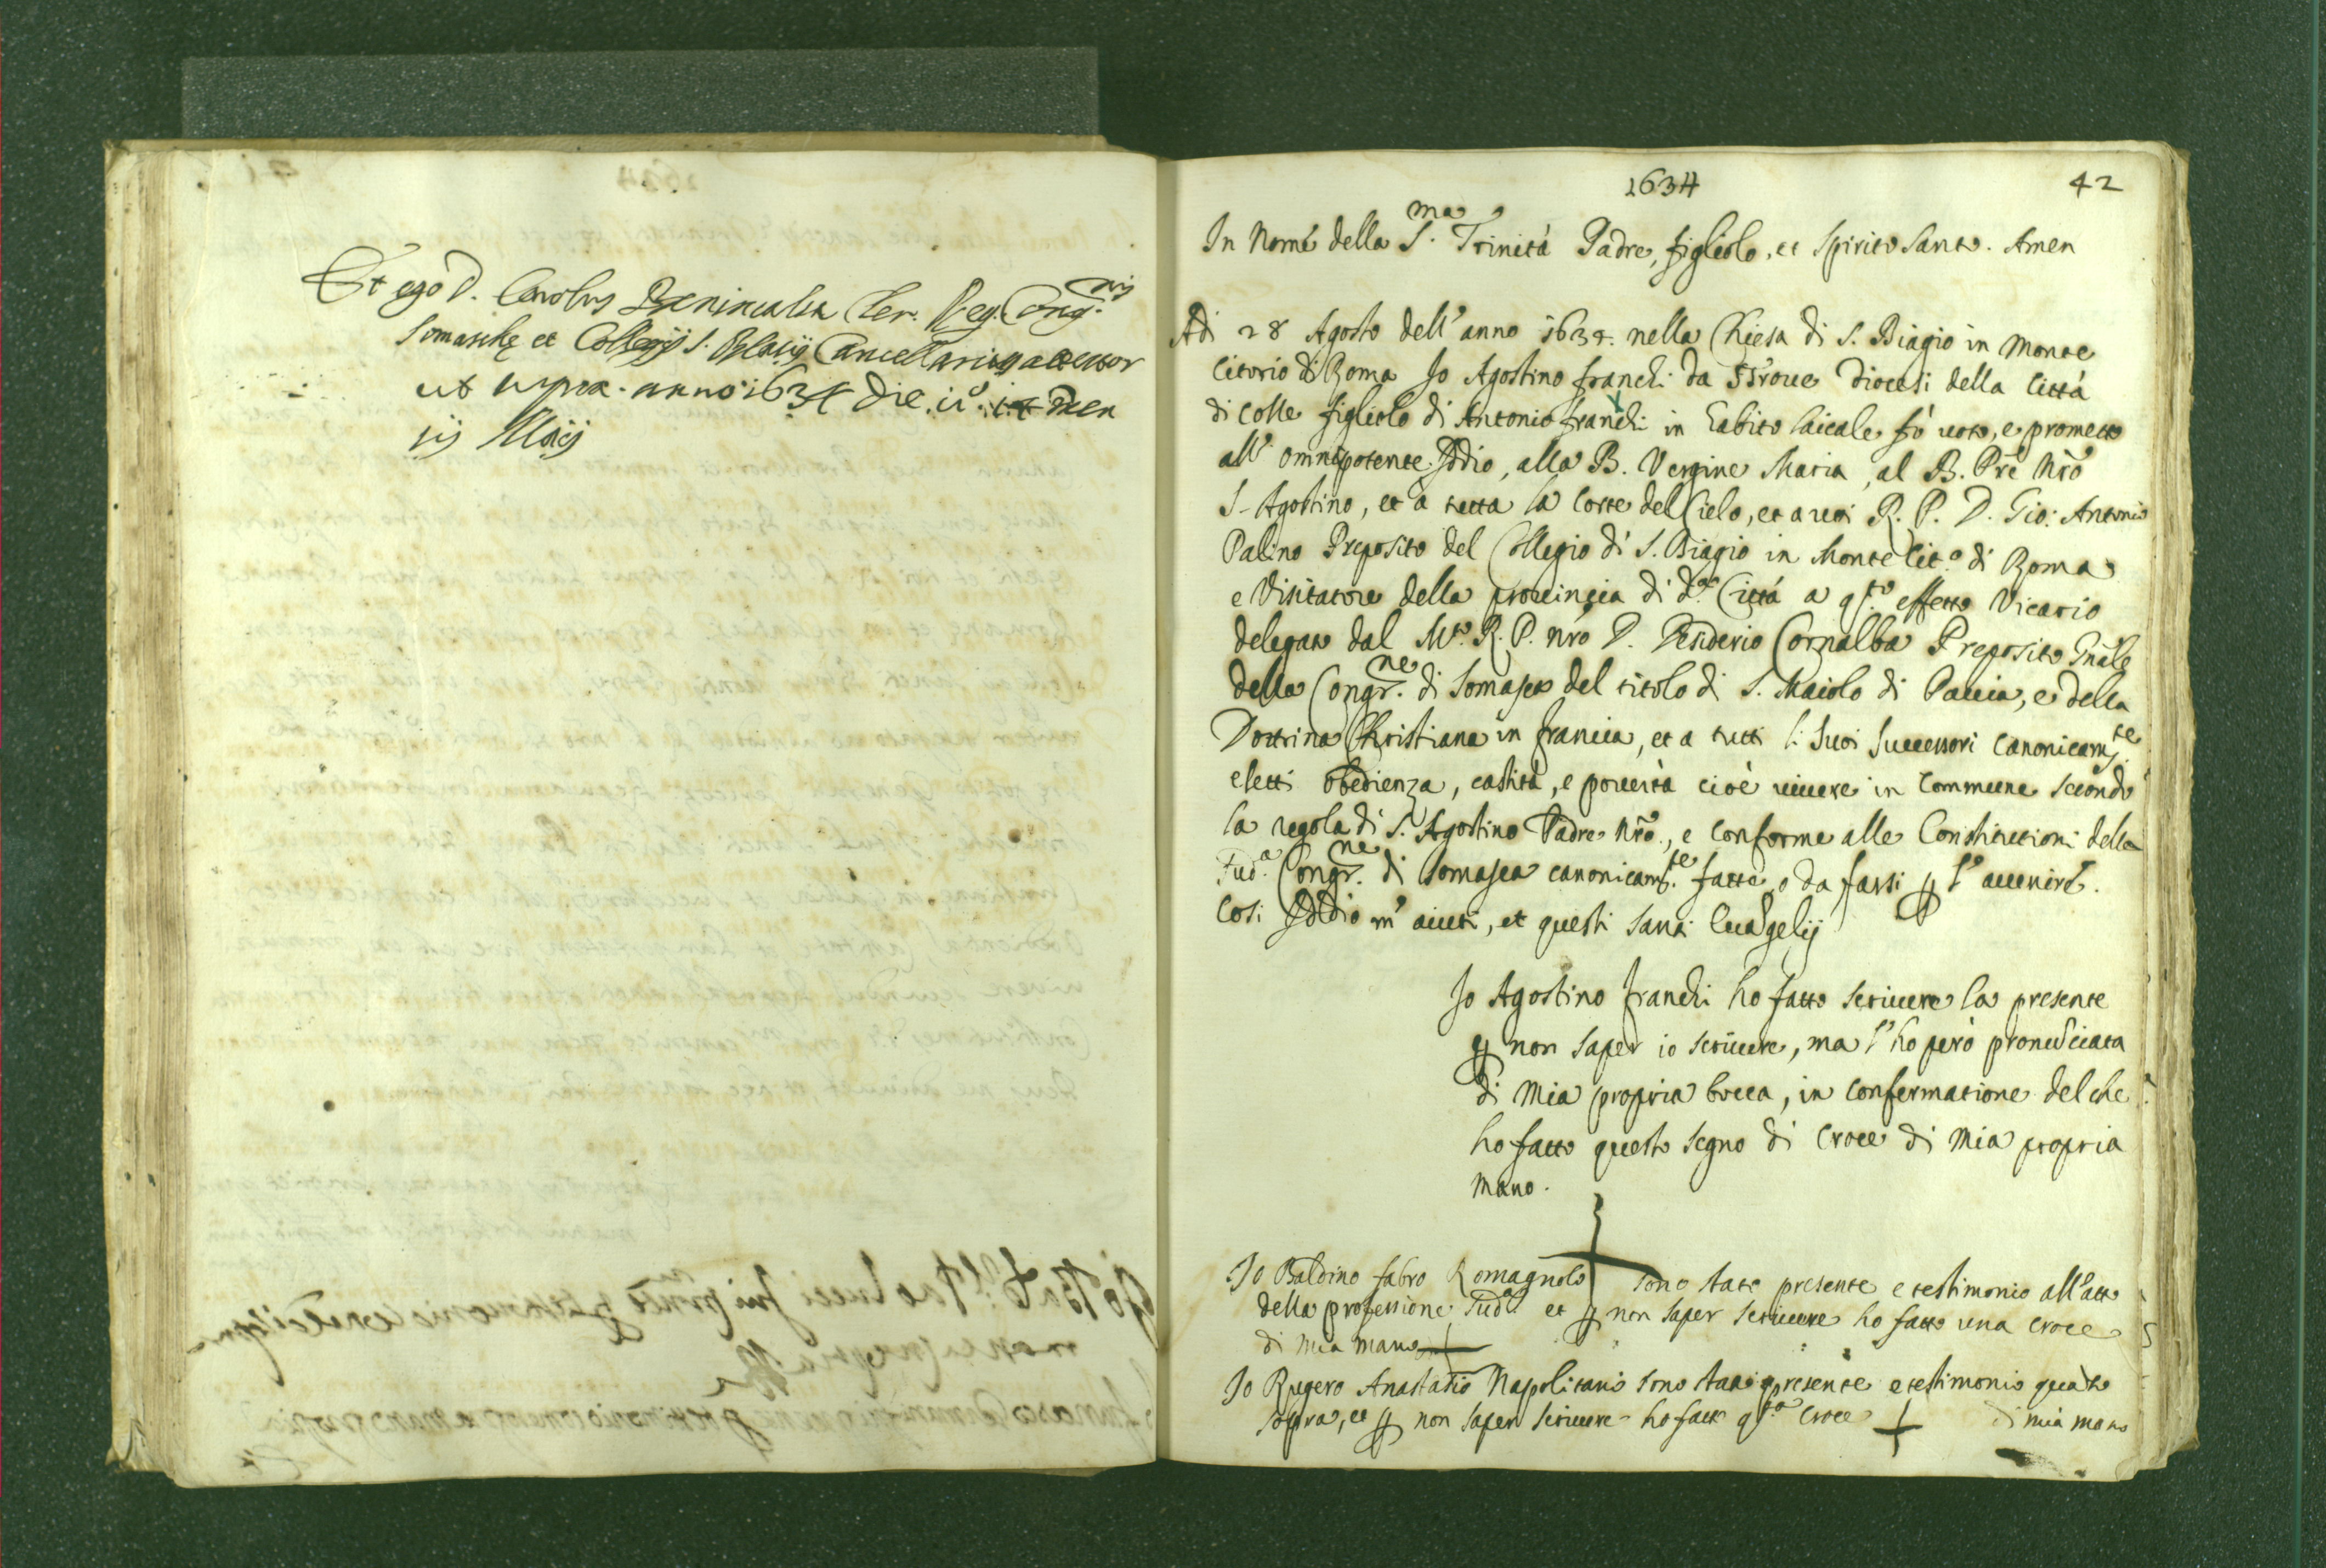 Et ego D. Carolus Benincasa Cler. Reg. Cong.nis
Somaschę et Collegij S. Blasij Cancellarius attestor
ut supra. anno 1634 die men
sis Maij
1634
42
In Nome della S.ma Trinità Padre, figliolo, et Spirito Santo. Amen
Adi 28 Agosto dell'anno 1634. nella Chiesa di S. Biagio in Monte
Citorio di Roma Io Agostino franchi da Strove Diocesi della Città
di Colle figliolo di Antonio franchi in habito laicale fò voto, e prometto
all'omnipotente Iddio, alla B. Vergine Maria, al B. Pre Nro
S. Agostino, et à tutta la Corte del Cielo, et a voi R. P. D. Gio: Antonio
Palino Preposito del Collegio di S. Biagio in Monte Cit.o di Roma
e Visitatore della provincia di d.a Città a q.to effetto Vicario
delegato dal M.to R. P. nro D. Desiderio Cornalba Preposito Gnale
della Congr.ne di Somasca del titolo di S. Maiolo di Pavia, e della
Dottrina Christiana in francia, et a tutti li suoi Successori canonicam.te
eletti obedienza, castità, e povertà cioè vivere in Commune secondo
la regola di S. Agostino Padre Nro, e conforme alle Constitutioni della
sud.a Congr.ne di Somasca canonicam.te fatte, o da farsi p l'avvenire.
Cosi Iddio m'aiuti, et questi santi Evãgelij
Io Agostino franchi ho fatto scrivere la presente
p non saper io scrivere, ma l'ho però pronũciata
di mia propria bocca, in confermatione del che
ho fatto questo segno di Croce di mia propria
mano.
Io Baldino fabro Romagnolo sono stato presente e testimonio all'atto
della professione sud.a et p non saper scrivere ho fatto una croce
di mia mano
Io Rugero Anastasio Napolitano sono stato presente e testimonio quãto
sopra, et p non saper scrivere ho fatto q.ta croce di mia mano